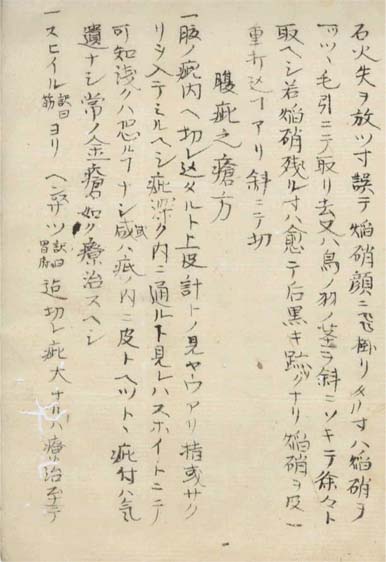 石火矢ヲ放ツ寸誤テ焔硝顔ニ飛掛リタル寸ハ焔硝ヲ
一ツヽ毛引ニテ取リ去又ハ鳥ノ羽ノ茎ヲ斜ニソキテ徐々ト
取ヘシ若焔硝残ル寸ハ愈テ后黒キ跡ナリ焔硝ヲ皮ニ
重打込ヿアリ斜ニテ切
腹疵之瘡方
一腹ノ疵内ヘ切レ込タルト上皮計トノ見ヤウアリ指或サク
リヲ入テミルヘシ疵深ク内ニ通ル下見レハスホイトニテ
可知浅クハ恐ルヿナシ或ハ疵ノ内ニ皮トヘットヽ疵付ハ気
遣ナシ常ノ金瘡如ク療治スヘシ
一スヒイル訳曰筋ヨリヘンツ訳曰胃府迠切レ疵大ナルハ療治